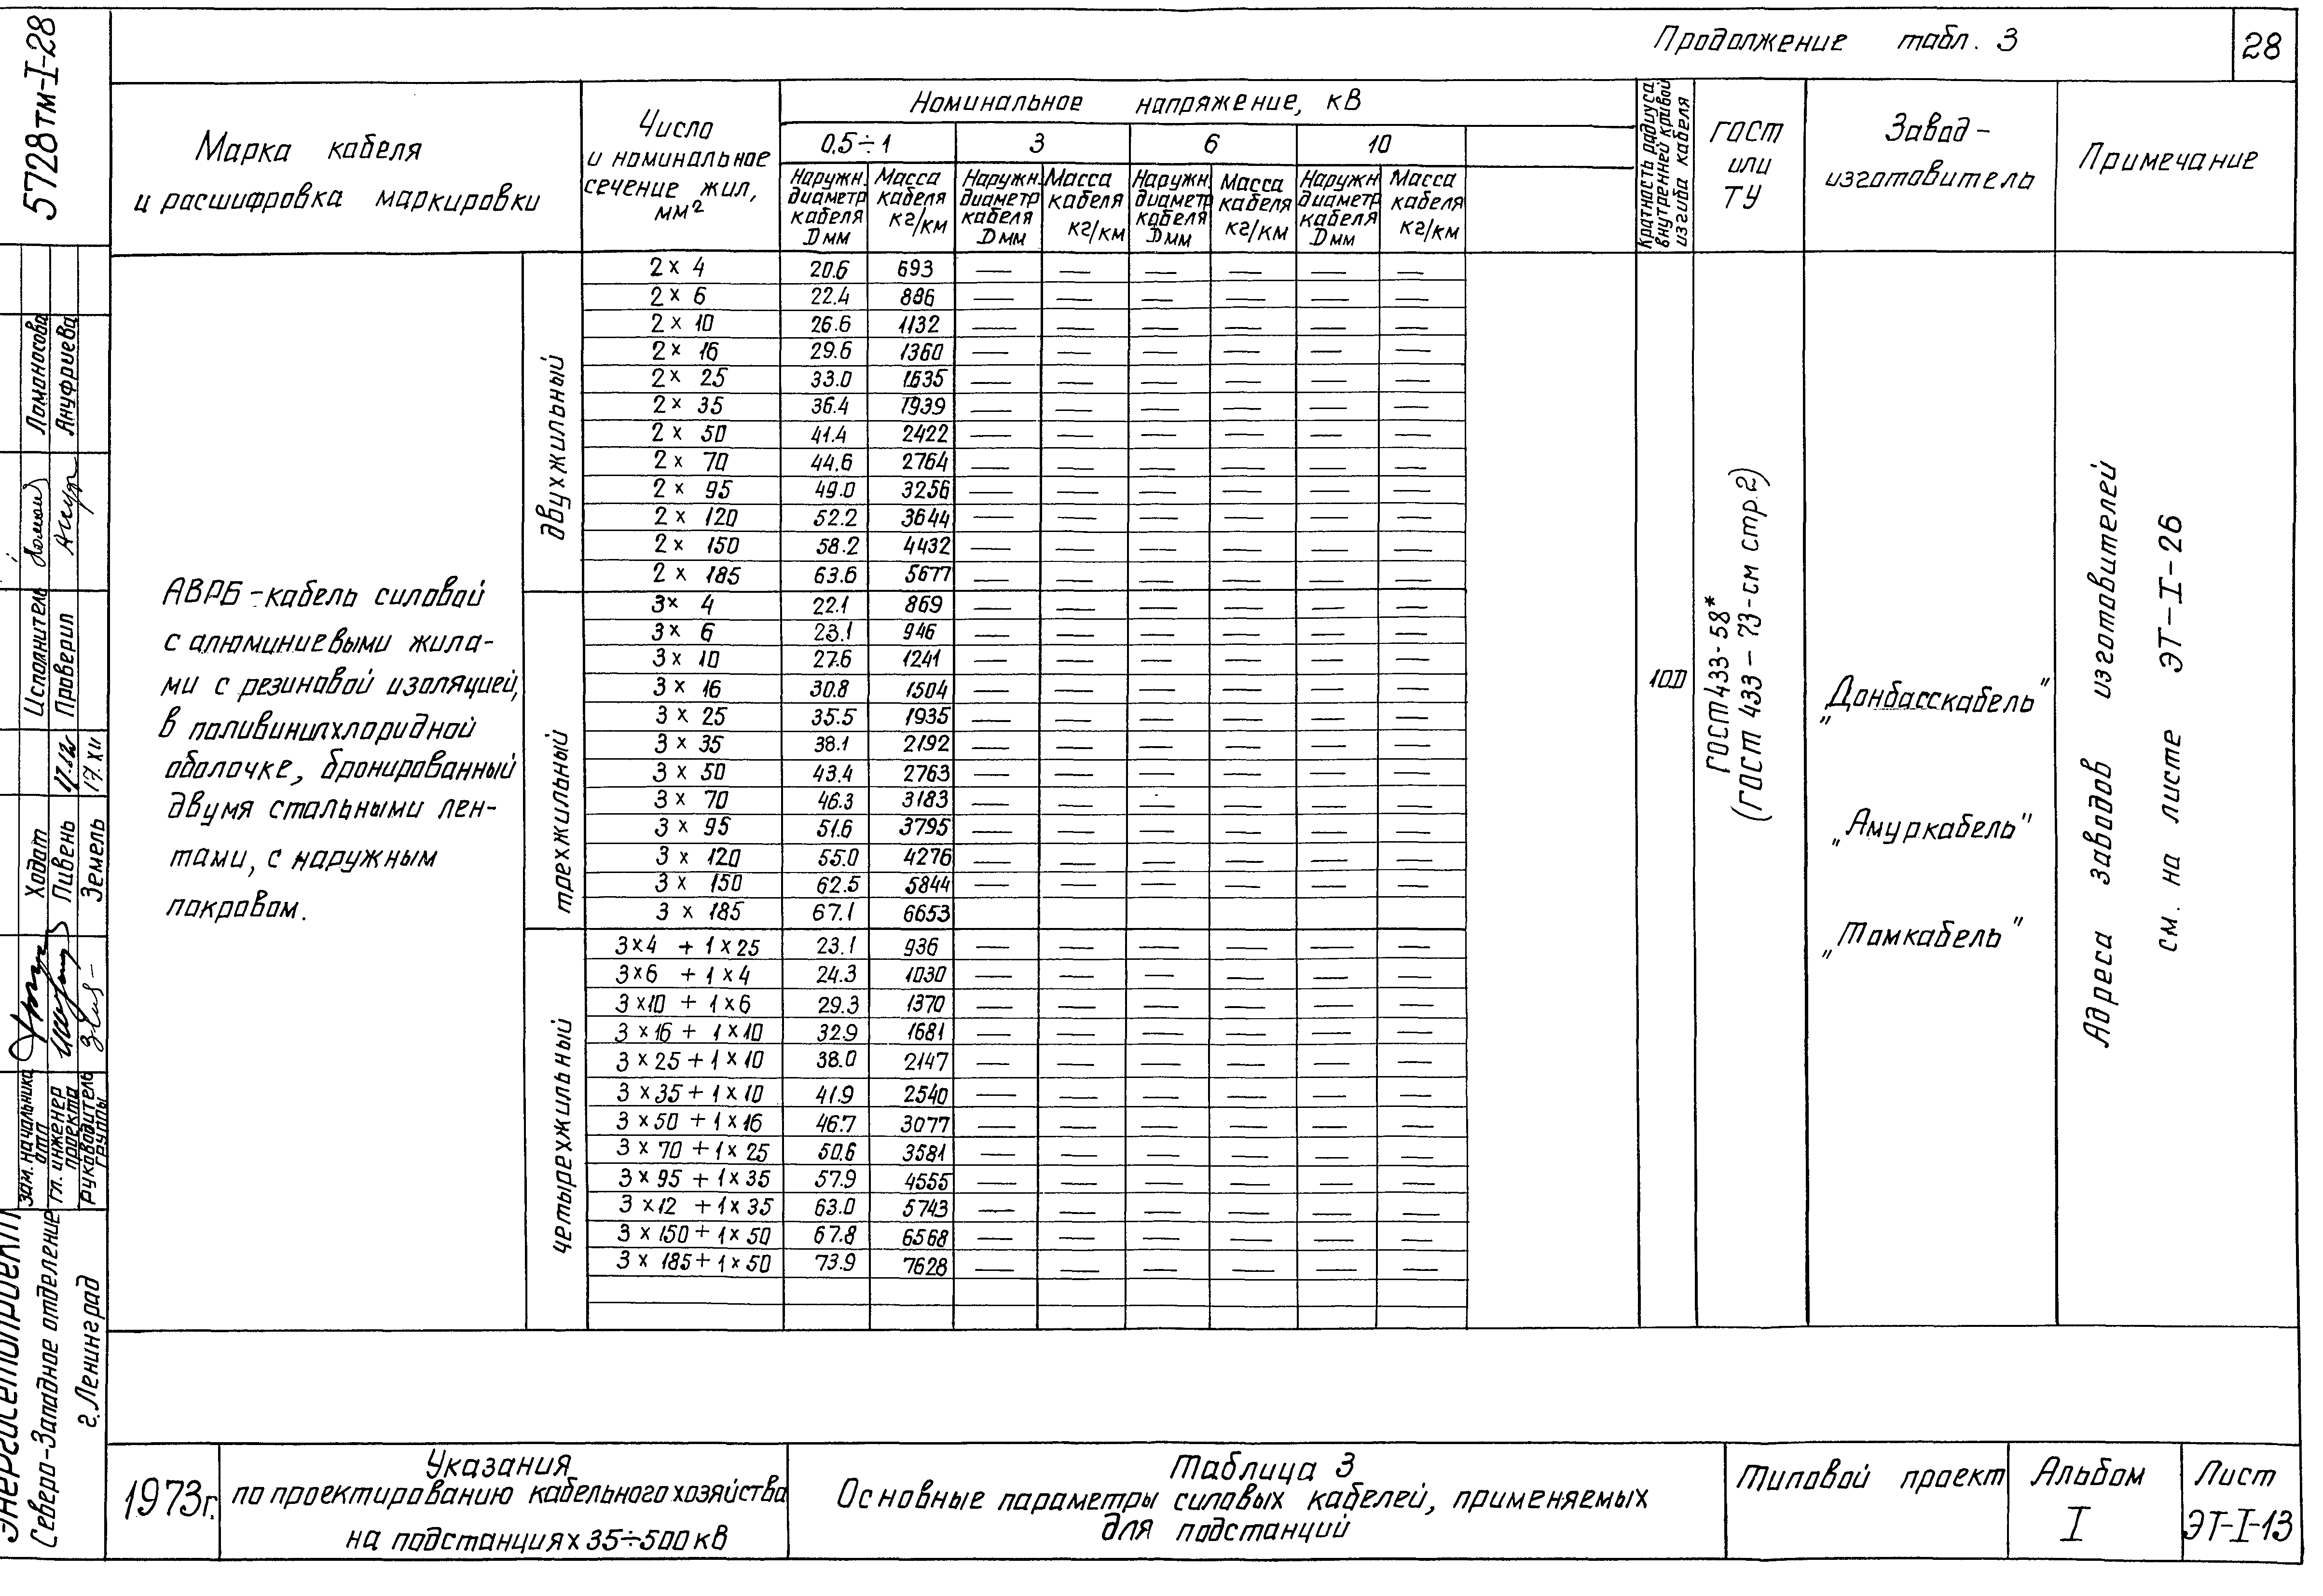 Продолжение табл. 3
28
5728тм-I-28
Марка кабеля
и расшифровка маркировки
Число
и номинальное
сечение жил,
мм²
Номинальное напряжение, кВ
0.5÷1 3 6 10
Наружн. диаметр кабеля D мм
Масса кабеля кг/км
Наружн. диаметр кабеля D мм
Масса кабеля кг/км
Наружн. диаметр кабеля D мм
Масса кабеля кг/км
Наружн. диаметр кабеля D мм
Масса кабеля кг/км
Кратность радиуса
внутренней кривой
изгиба кабеля
ГОСТ
или
ТУ
Завод-
изготовитель
Примечание
АВРБ - кабель силовой
с алюминиевыми жила-
ми с резиновой изоляцией,
в поливинилхлоридной
оболочке, бронированный
двумя стальными лен-
тами, с наружным
покровом.
двухжильный
2 × 4 20.6 693 — — — — — —
2 × 6 22.4 886 — — — — — —
2 × 10 26.6 1132 — — — — — —
2 × 16 29.6 1360 — — — — — —
2 × 25 33.0 1635 — — — — — —
2 × 35 36.4 1939 — — — — — —
2 × 50 41.4 2422 — — — — — —
2 × 70 44.6 2764 — — — — — —
2 × 95 49.0 3256 — — — — — —
2 × 120 52.2 3644 — — — — — —
2 × 150 58.2 4432 — — — — — —
2 × 185 63.6 5677 — — — — — —
трехжильный
3 × 4 22.1 869 — — — — — —
3 × 6 23.1 946 — — — — — —
3 × 10 27.6 1241 — — — — — —
3 × 16 30.8 1504 — — — — — —
3 × 25 35.5 1935 — — — — — —
3 × 35 38.1 2192 — — — — — —
3 × 50 43.4 2763 — — — — — —
3 × 70 46.3 3183 — — — — — —
3 × 95 51.6 3795 — — — — — —
3 × 120 55.0 4276 — — — — — —
3 × 150 62.5 5844 — — — — — —
3 × 185 67.1 6653
четырехжильный
3×4 + 1×25 23.1 936 — — — — — —
3×6 + 1×4 24.3 1030 — — — — — —
3×10 + 1×6 29.3 1370 — — — — — —
3×16 + 1×10 32.9 1681 — — — — — —
3×25 + 1×10 38.0 2147 — — — — — —
3×35 + 1×10 41.9 2540 — — — — — —
3×50 + 1×16 46.7 3077 — — — — — —
3×70 + 1×25 50.6 3581 — — — — — —
3×95 + 1×35 57.9 4555 — — — — — —
3×12 + 1×35 63.0 5743 — — — — — —
3×150 + 1×50 67.8 6568 — — — — — —
3×185 + 1×50 73.9 7628 — — — — — —
10D
ГОСТ 433-58*
(ГОСТ 433-73-см стр.2)
„Донбасскабель"
„Амуркабель"
„Томкабель"
Адреса заводов изготовителей
см. на листе ЭТ-I-26
Исполнитель Ломоносова
Проверил Ануфриева
зам. начальника ОТП Ходот
гл. инженер проекта Пивень 17.12
Руководитель группы Земель 17.XII
Энергосетьпроект
Северо-Западное отделение
г. Ленинград
1973г.
Указания
по проектированию кабельного хозяйства
на подстанциях 35÷500 кВ
Таблица 3
Основные параметры силовых кабелей, применяемых
для подстанций
Типовой проект
Альбом
I
Лист
ЭТ-I-13